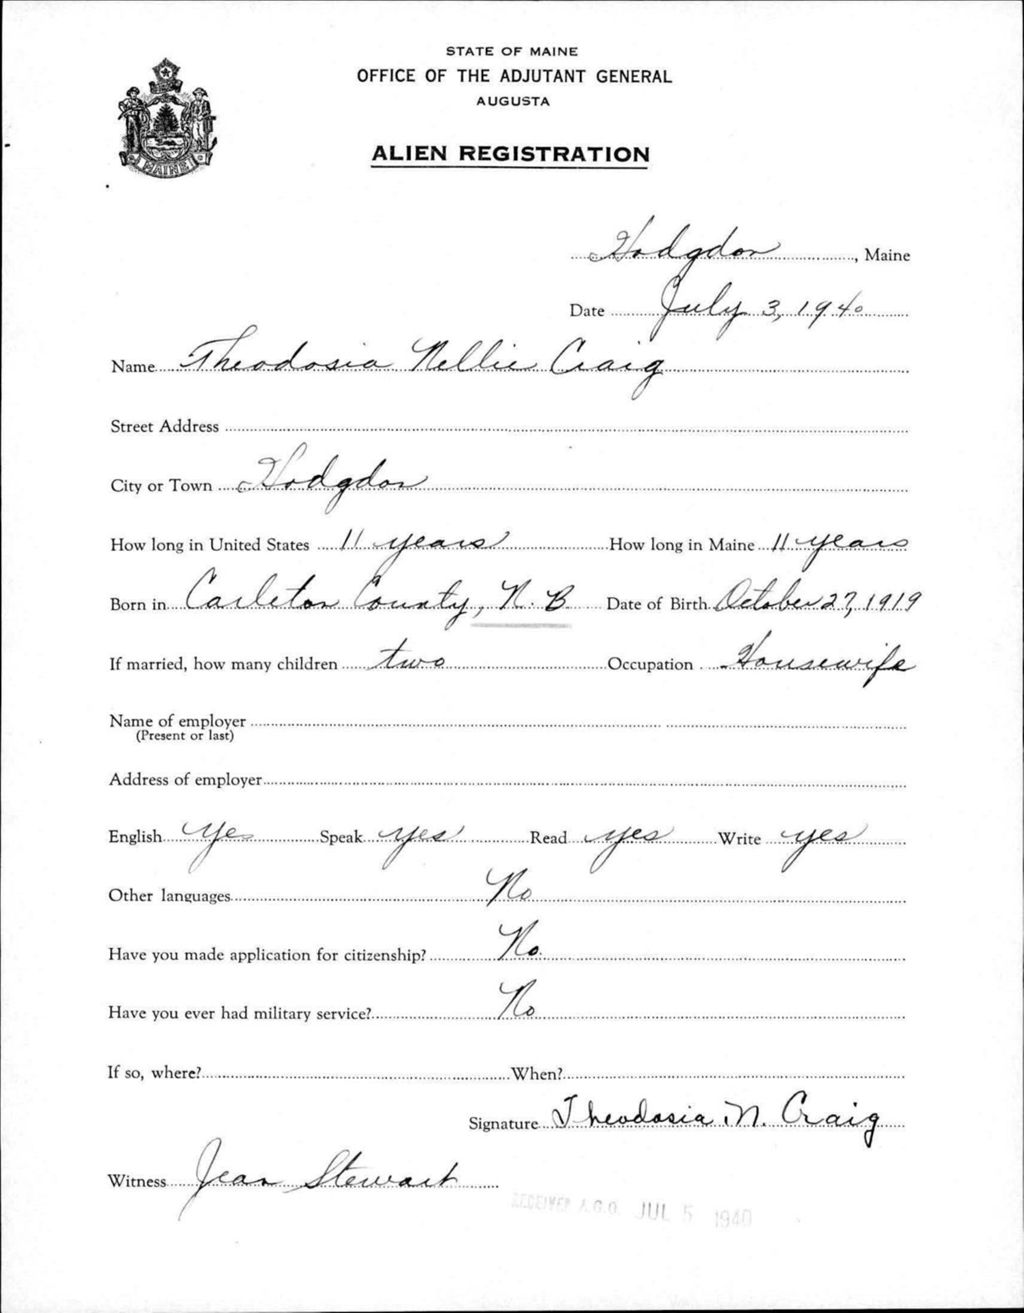 STATE OF MAINE
OFFICE OF THE ADJUTANT GENERAL
AUGUSTA
ALIEN REGISTRATION
MAINE
Hodgdon, Maine
Date July 3, 1940
Name Theodosia Nellie Craig
Street Address
City or Town Hodgdon
How long in United States 11 years How long in Maine 11 years
Born in Carleton County, N. B Date of Birth October 27, 1919
If married, how many children two Occupation Housewife
Name of employer
(Present or last)
Address of employer
English Yes Speak yes Read yes Write yes
Other languages No
Have you made application for citizenship? No.
Have you ever had military service? No
If so, where? When?
Signature Theodosia N. Craig
Witness Jean Stewart
RECEIVED A.G.O. JUL 5 1940